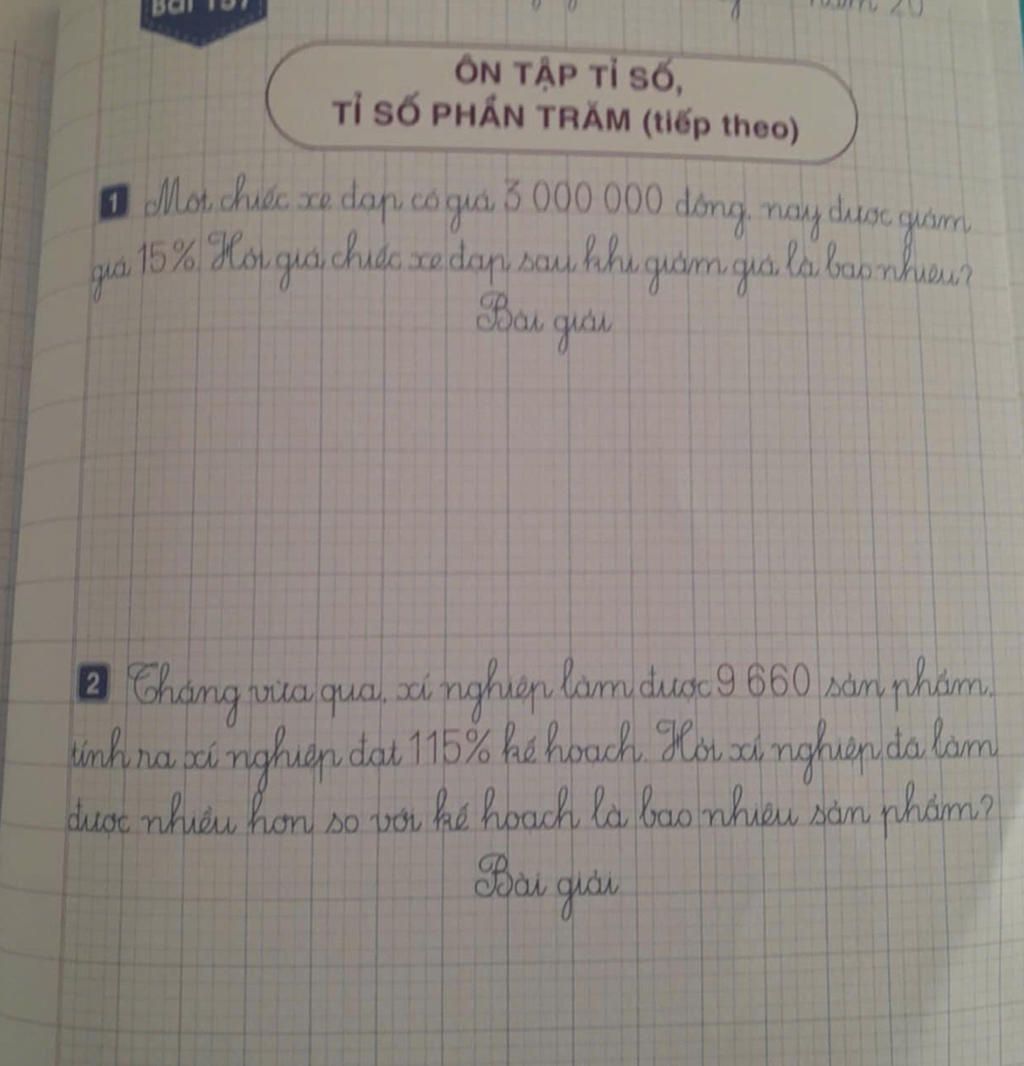 ÔN TẬP TỈ SỐ,
TỈ SỐ PHẦN TRĂM (tiếp theo)
1 Một chiếc xe đạp có giá 3 000 000 đồng, nay được giảm
giá 15%. Hỏi giá chiếc xe đạp sau khi giảm giá là bao nhiêu?
Bài giải
2 Tháng vừa qua, xí nghiệp làm được 9 660 sản phẩm,
tính ra xí nghiệp đạt 115% kế hoạch. Hỏi xí nghiệp đã làm
được nhiều hơn so với kế hoạch là bao nhiêu sản phẩm?
Bài giải